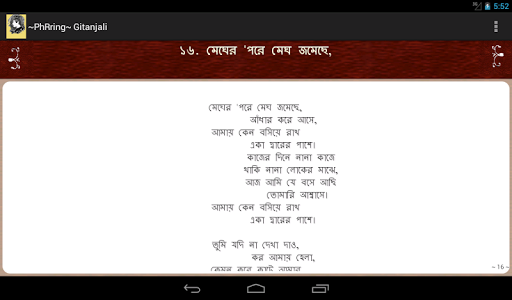 5:52
~PhRring~ Gitanjali
১৬. মেঘের 'পরে মেঘ জমেছে,
মেঘের 'পরে মেঘ জমেছে,
আঁধার করে আসে,
আমায় কেন বসিয়ে রাখ
একা দ্বারের পাশে।
কাজের দিনে নানা কাজে
থাকি নানা লোকের মাঝে,
আজ আমি যে বসে আছি
তোমারি আশ্বাসে।
আমায় কেন বসিয়ে রাখ
একা দ্বারের পাশে।
তুমি যদি না দেখা দাও,
কর আমায় হেলা,
কেমন করে কাটে আমার
~ 16 ~